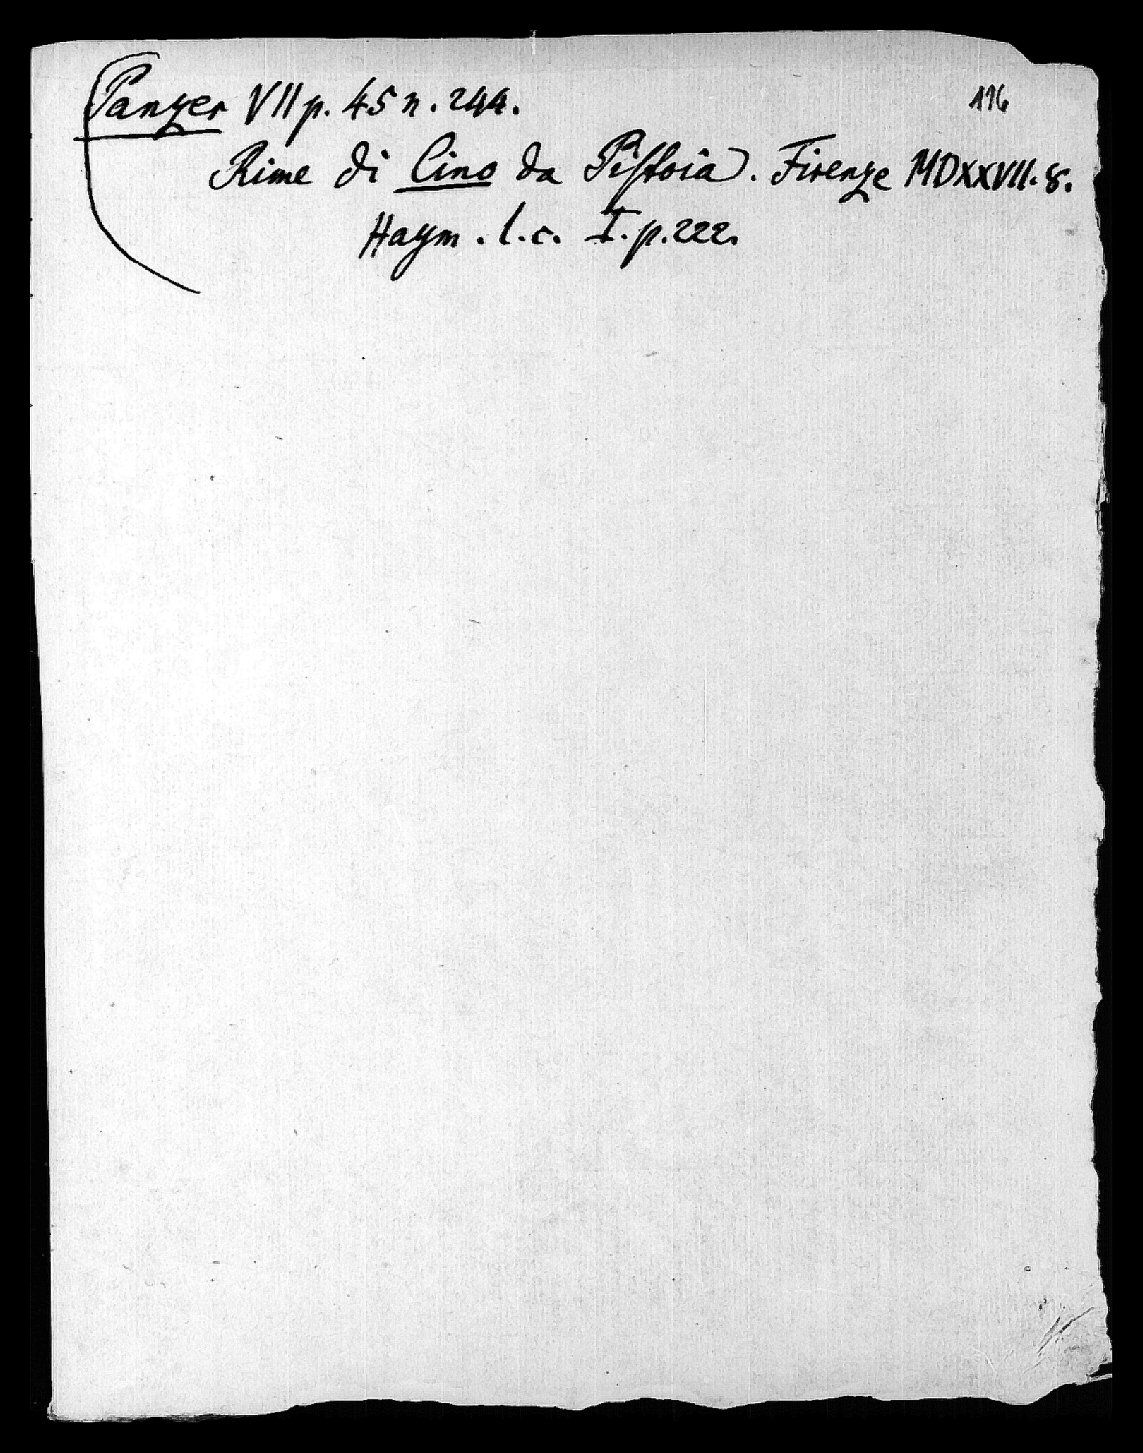 Panzer VII p. 45 n. 244.
116
Rime di Cino da Pistoia. Firenze MDXXVII. 8.
Haym. l. c. I. p. 222.